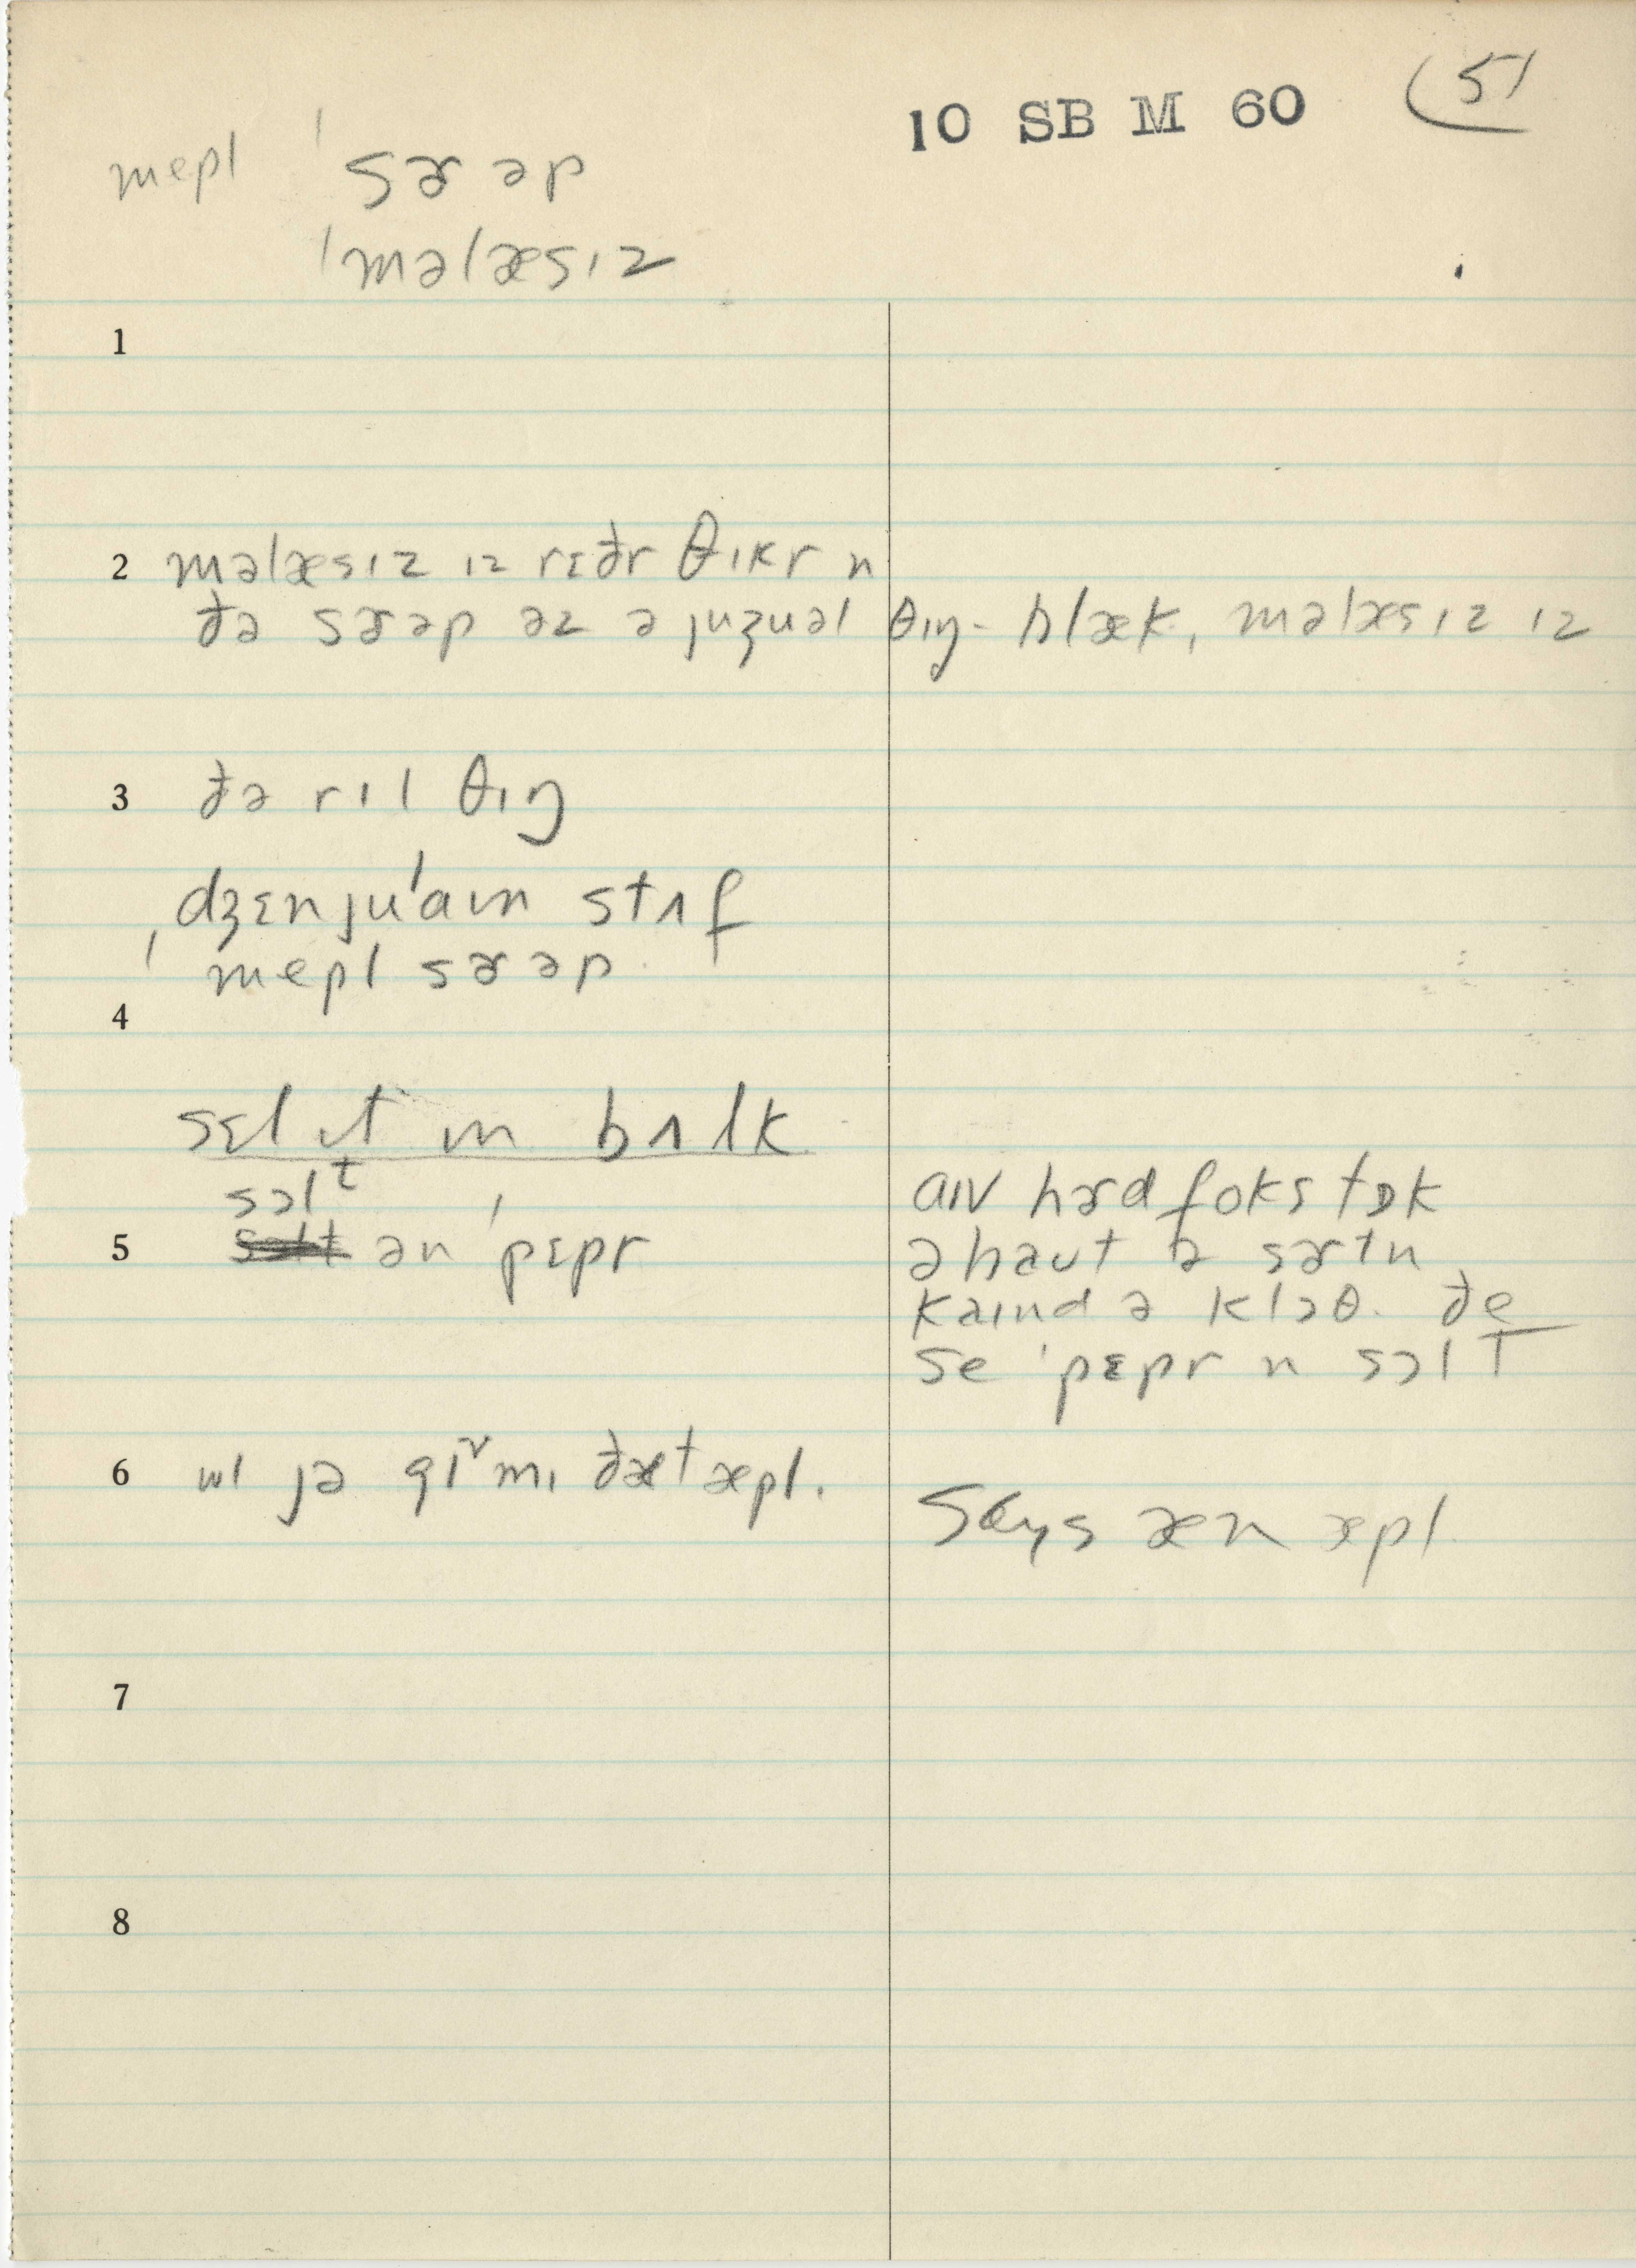 10 SB M 60 (51
mepl ˈsɚəp
ˈməlæsɪz
1
2 məlæsɪz ɪz rɛðr θɪkr n
ðə sɚəp əz ə juʒuəl θɪŋ- blæk, məlæsɪz ɪz
3 ðə rɪl θɪŋ
dʒɛnjuˈaɪn stʌf
ˈmepl sɚəp.
4
sɛl ɪt ɪn bʌlk
sɔlt
5 ən ˈpɛpr
aɪv hɚd foks tɒk
əbaʊt ə sɚtn
kaɪnd ə klɔθ. ðe
se ˈpɛpr n sɔlt
6 wl jə gɪv mɪ ðæt æpl.
Says æn æpl
7
8